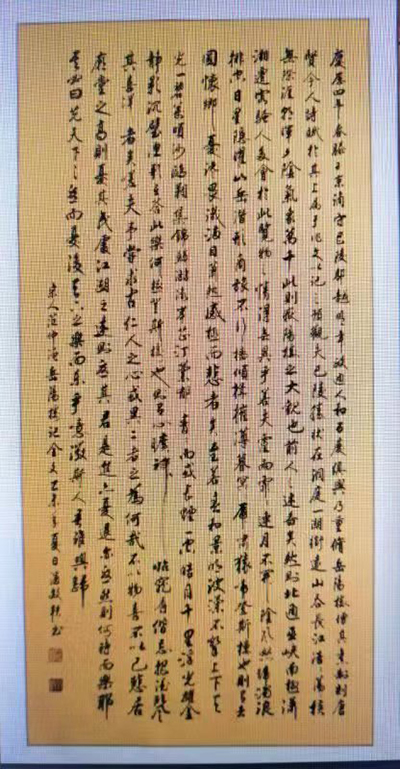 慶曆四年春滕子京謫守巴陵郡越明年政通人和百廢俱興乃重修岳陽樓增其舊制刻唐
賢今人詩賦於其上屬予作文以記之予觀夫巴陵勝狀在洞庭一湖銜遠山吞長江浩浩蕩蕩橫
無際涯朝暉夕陰氣象萬千此則嶽陽樓之大觀也前人之述備矣然則北通巫峽南極瀟
湘遷客騷人多會於此覽物之情得無異乎若夫霪雨霏霏連月不開陰風怒號濁浪
排空日星隱耀山岳潛形商旅不行檣傾楫摧薄暮冥冥虎嘯猿啼登斯樓也則有去
國懷鄉憂讒畏譏滿目蕭然感極而悲者矣至若春和景明波瀾不驚上下天
光一碧萬頃沙鷗翔集錦鱗游泳岸芷汀蘭郁郁青青而或長煙一空皓月千里浮光耀金
靜影沉璧漁歌互答此樂何極登斯樓也則有心曠神怡寵辱偕忘把酒臨風
其喜洋洋者矣嗟夫予嘗求古仁人之心或異二者之為何哉不以物喜不以己悲居
廟堂之高則憂其民處江湖之遠則憂其君是進亦憂退亦憂然則何時而樂耶
其必曰先天下之憂而憂後天下之樂而樂乎噫微斯人吾誰與歸
宋人范仲淹岳陽樓記全文乙未年夏日書